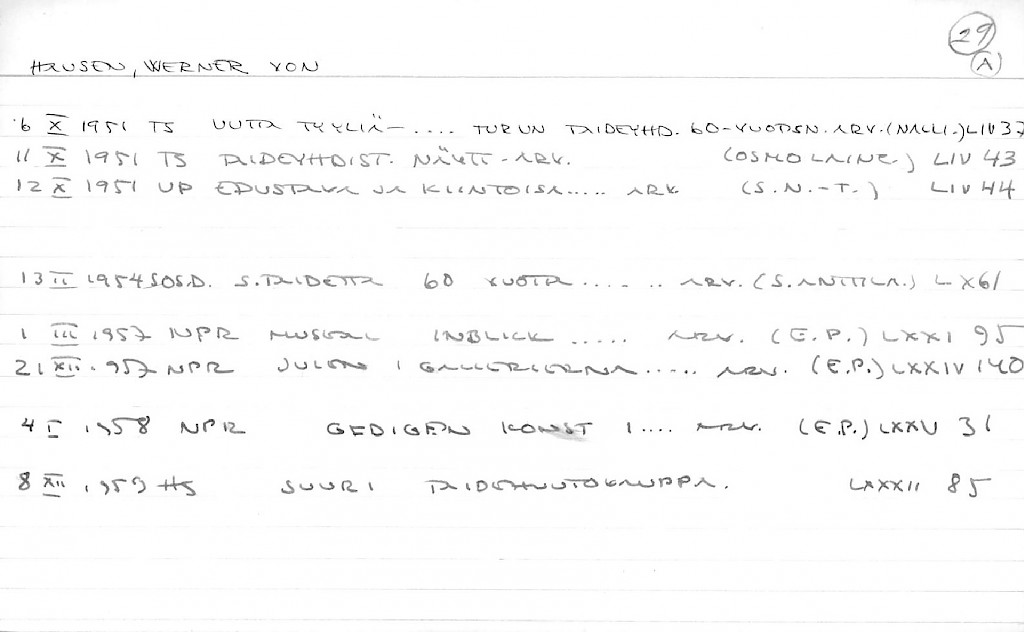 29
A
HAUSEN, WERNER VON
6 X 1951 TS UUTTA TYYLIÄ-.... TURUN TAIDEYHD. 60-VUOTISN. ARV. (NALLI.) LIV 37
11 X 1951 TS TAIDEYHDIST. NÄYTT-ARV. (OSMO LAINE.) LIV 43
12 X 1951 UP EDUSTAVA JA KIINTOISA..... ARV. (S.N.-T.) LIV 44
13 II 1954 SOS.D. S.TAIDETTA 60 VUOTTA ...... ARV. (S. ANTTILA.) LX 61
1 III 1957 NPR INBLICK ..... ARV. (E.P.) LXXI 95
21 XII 1957 NPR JULEN I GALLERIERNA..... ARV. (E.P.) LXXIV 140
4 I 1958 NPR GEDIGEN KONST I.... ARV. (E.P.) LXXV 31
8 XII 1959 HS SUURI TAIDEHUUTOKAUPPA. LXXXII 85